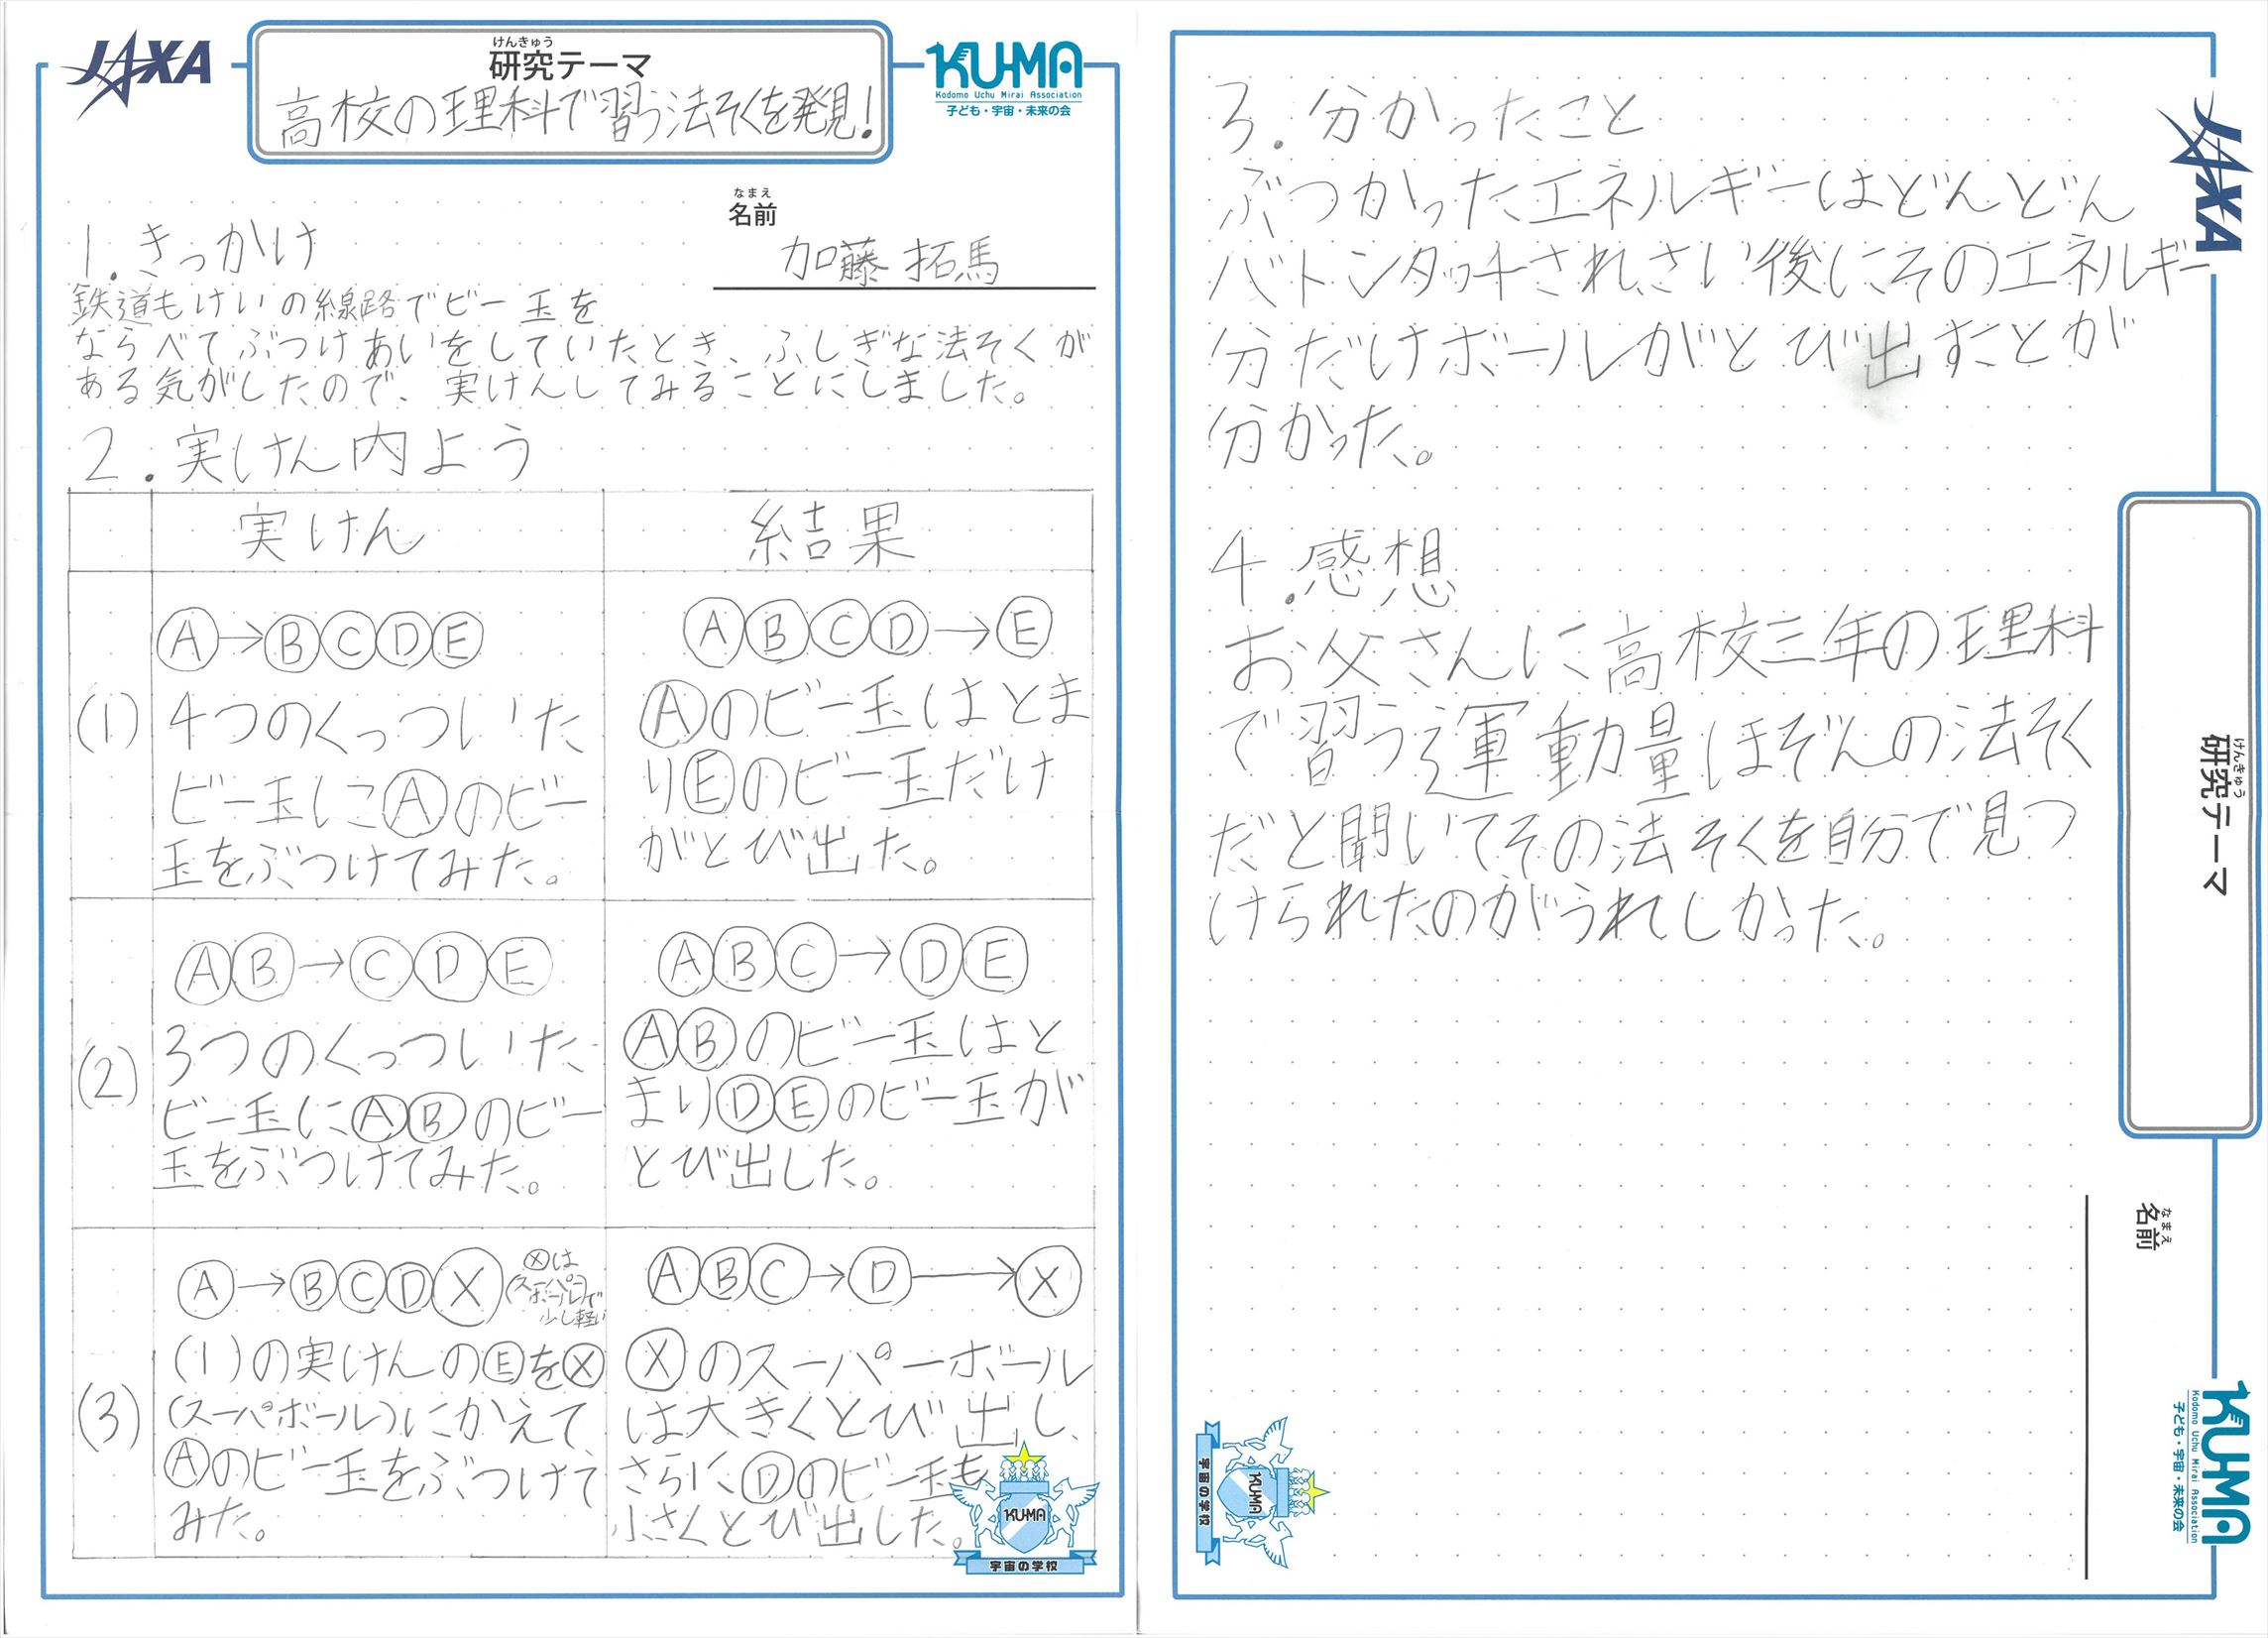 JAXA
けんきゅう
研究テーマ
高校の理科で習う法そくを発見!
KU-MA
Kodomo Uchu Mirai Association
子ども・宇宙・未来の会
なまえ
名前
加藤 拓馬
1.きっかけ
鉄道もけいの線路でビー玉を
ならべてぶつけあいをしていたとき、ふしぎな法そくが
ある気がしたので、実けんしてみることにしました。
2.実けん内よう
実けん
結果
(1)
Ⓐ→ⒷⒸⒹⒺ
4つのくっついた
ビー玉にⒶのビー
玉をぶつけてみた。
ⒶⒷⒸⒹ→Ⓔ
Ⓐのビー玉はとま
りⒺのビー玉だけ
がとび出た。
(2)
ⒶⒷ→ⒸⒹⒺ
3つのくっついた
ビー玉にⒶⒷのビー
玉をぶつけてみた。
ⒶⒷⒸ→ⒹⒺ
ⒶⒷのビー玉はと
まりⒹⒺのビー玉が
とび出した。
(3)
Ⓐ→ⒷⒸⒹⓍ
Ⓧは
(スーパー
ボール)で
少し軽い
(1)の実けんのⒺをⓍ
(スーパボール)にかえて
Ⓐのビー玉をぶつけて
みた。
ⒶⒷⒸ→Ⓓ→Ⓧ
Ⓧのスーパーボール
は大きくとび出し、
さらにⒹのビー玉も
小さくとび出した。
KU-MA
宇宙の学校
3.分かったこと
ぶつかったエネルギーはどんどん
バトンタッチされ、さい後にそのエネルギー
分だけボールがとび出すことが
分かった。
4.感想
お父さんに高校三年の理科
で習う運動量ほぞんの法そく
だと聞いてその法そくを自分で見つ
けられたのがうれしかった。
JAXA
けんきゅう
研究テーマ
なまえ
名前
KU-MA
Kodomo Uchu Mirai Association
子ども・宇宙・未来の会
KU-MA
宇宙の学校